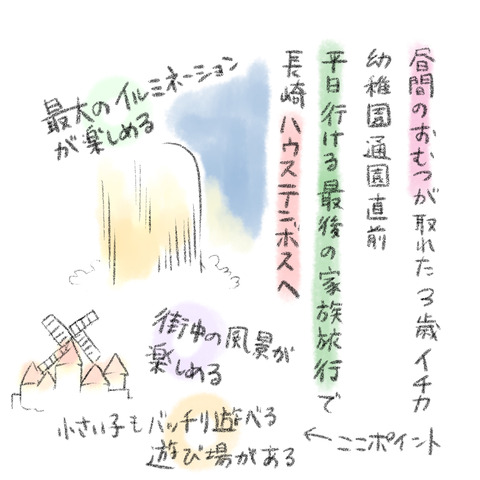 昼間のおむつが取れた3歳イチカ
幼稚園通園直前
平日行ける最後の家族旅行で
長崎ハウステンボスへ
最大のイルミネーション
が楽しめる
街中の風景が
楽しめる
小さい子もバッチリ遊べる
遊び場がある
←ここポイント